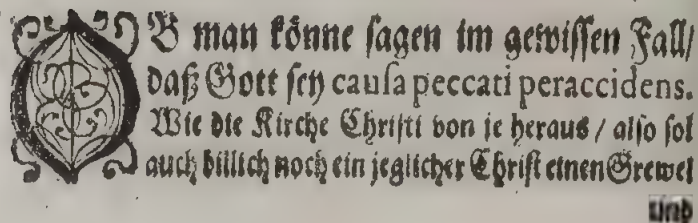 OB man könne sagen im gewissen Fall/
daß Gott sey causa peccati peraccidens.
Wie die Kirche Christi von je heraus / also sol
auch billich noch ein jeglicher Christ einen Grewel
und